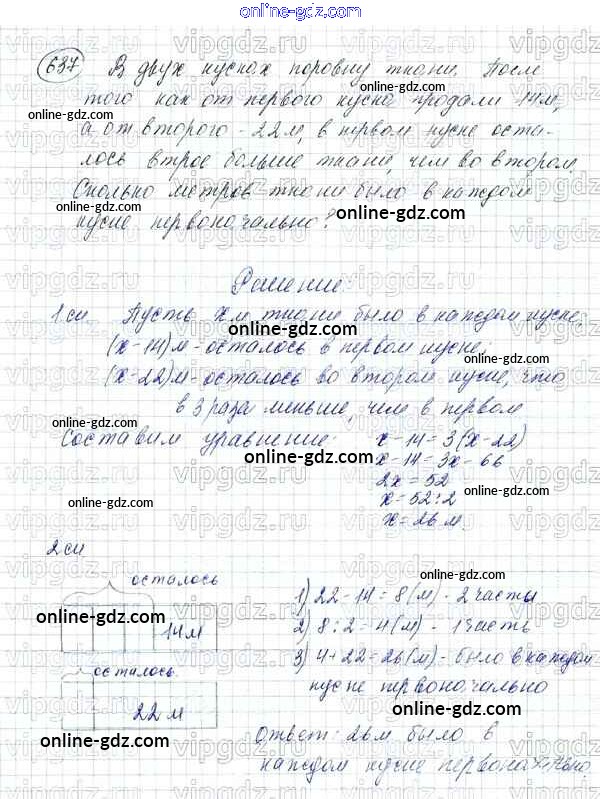 online-gdz.com
637 В двух кусках поровну ткани. После
того как от первого куска продали 14м,
а от второго - 22м, в первом куске оста-
лось втрое больше ткани, чем во втором.
Сколько метров ткани было в каждом
куске первоначально?
Решение:
1 сп. Пусть х м ткани было в каждом куске,
(х-14)м - осталось в первом куске;
(х-22)м - осталось во втором куске, что
в 3 раза меньше, чем в первом
Составим уравнение:
х-14=3(х-22)
х-14=3х-66
2х=52
х=52:2
х=26 м.
2 сп
осталось
14м
осталось
22 м
1) 22-14=8(м) - 2 части
2) 8:2=4(м) - 1 часть
3) 4+22=26(м) - было в каждом
куске первоначально
Ответ: 26м было в
каждом куске первоначально.